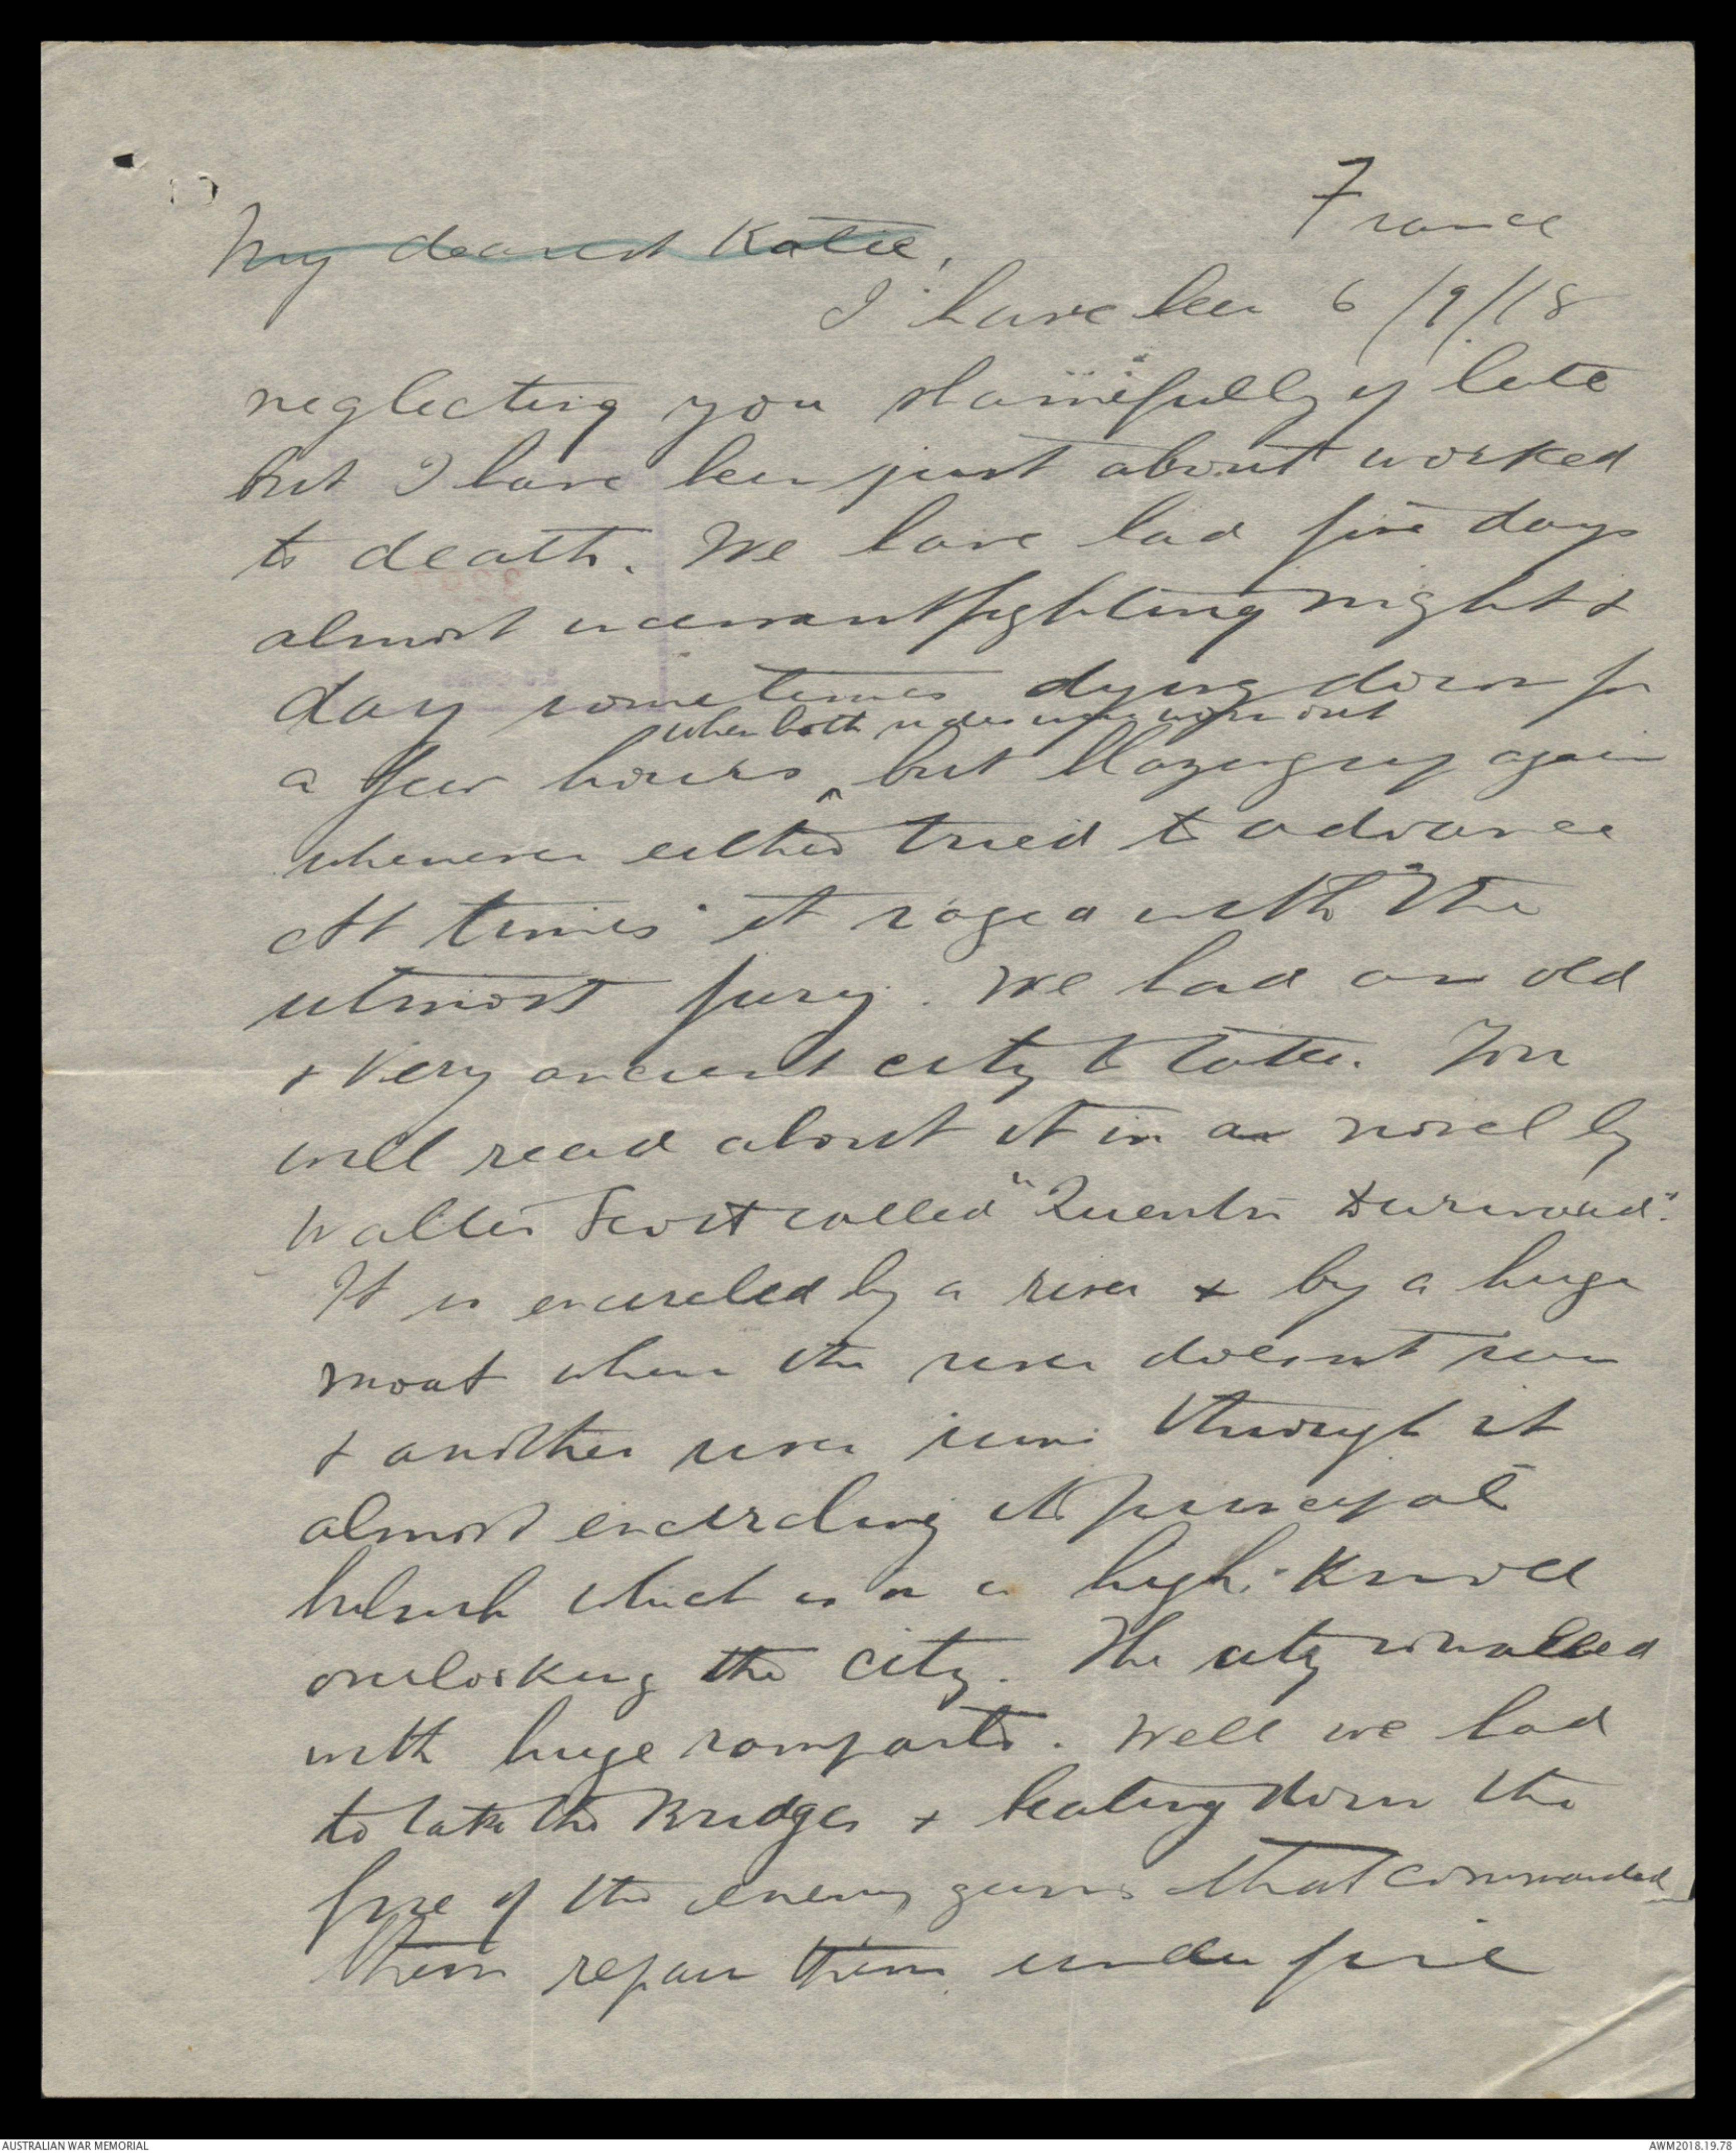 France
My dearest Katie,
I have been 6/9/18
neglecting you shamefully of late
but I have been just about worked
to death. We have had five days
almost incessant fighting night &
day sometimes dying down for
when both sides were worn out
a few hours but blazing up again
whenever either tried to advance
At times it raged with the
utmost fury. We had an old
& very ancient city to take. You
will read about it in a novel by
Walter Scott called "Quentin Durward".
It is encircled by a river & by a huge
moat where the river doesn't run
& another river runs through it
almost encircling its principal
which is on a high knoll
overlooking the city. The city is walled
with huge ramparts. Well we had
to take the Bridges & beating down the
fire of the enemy guns that commanded
them repair them under fire
AUSTRALIAN WAR MEMORIAL
AWM2018.19.78